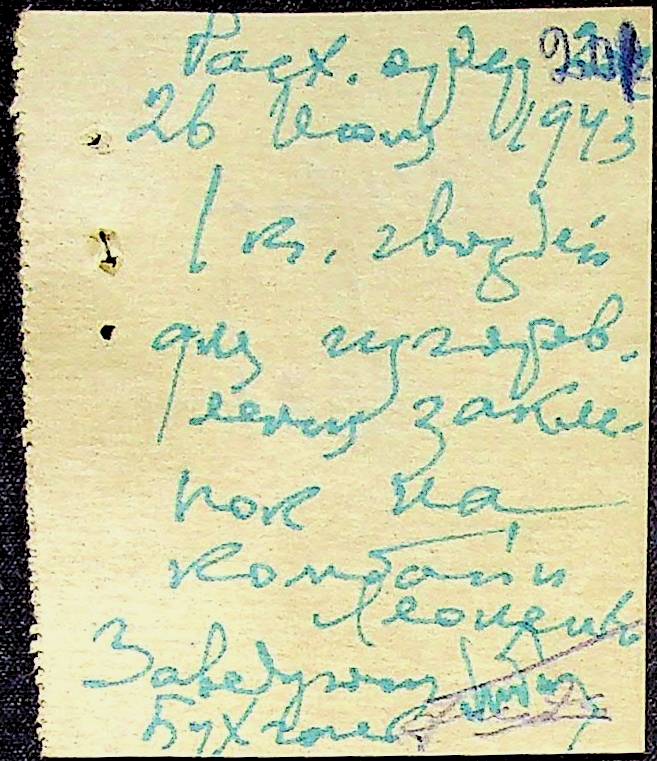 Расх. ордер 201
26 Июня 1943
1 кг. гвоздей
для изготов.
ления заклё-
пок на
комбайн
Заведующ
Бухгалтер